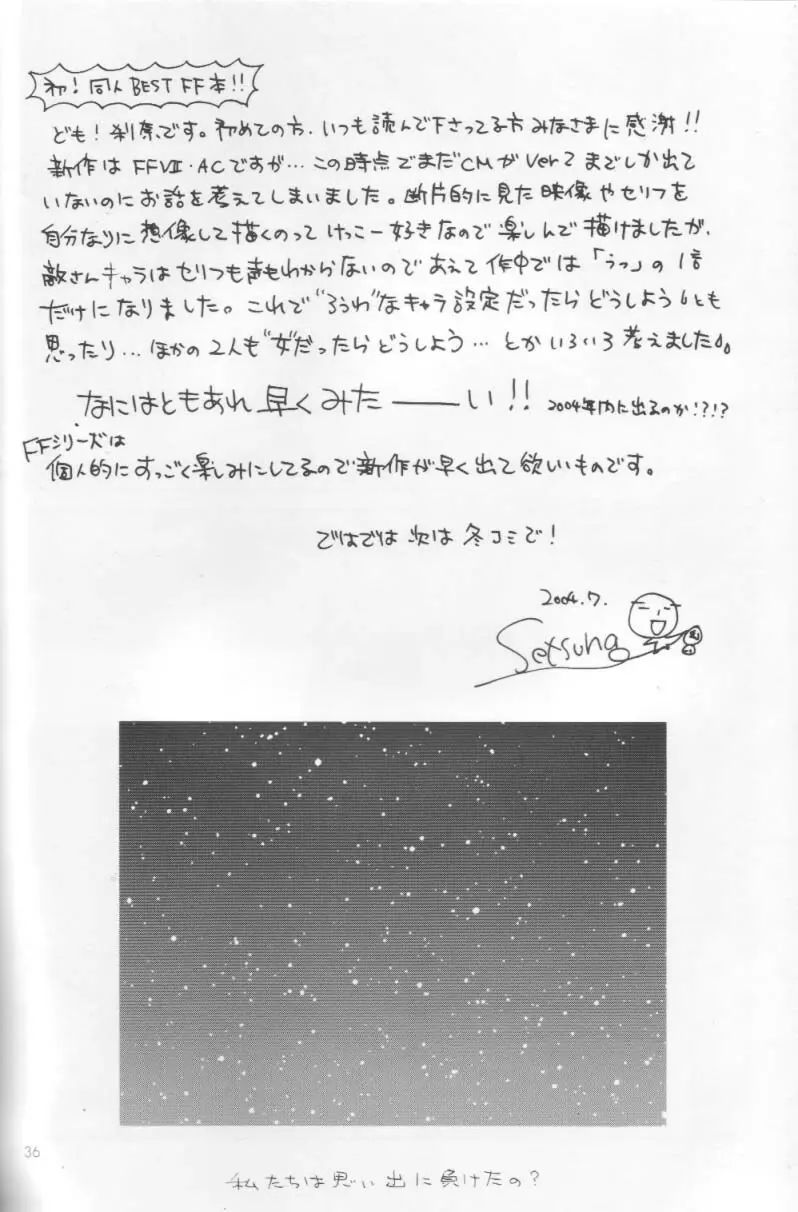 初！同人BEST FF本!!
ども！刹奈です。初めての方、いつも読んで下さってる方みなさまに感謝!!
新作はFFⅦ・ACですが…この時点でまだCMがVer2までしか出て
いないのにお話を考えてしまいました。断片的に見た映像やセリフを
自分なりに想像して描くのってけっこー好きなので楽しんで描けましたが、
敵さんキャラはセリフも声もわからないのであえて作中では「うっ」の1言
だけになりました。これで"ろうわ"なキャラ設定だったらどうしようとも
思ったり…ほかの2人も"女"だったらどうしよう…とかいろいろ考えました。
なにはともあれ早くみたーーい!! 2004年内に出るのか!?!?
FFシリーズは
個人的にすっごく楽しみにしてるので新作が早く出て欲しいものです。
ではでは次は冬コミで！
2004.7.
Setsuna
36
私たちは思い出に負けたの？